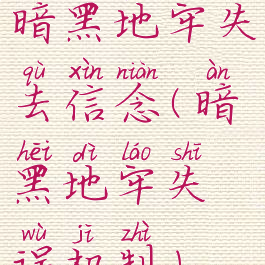 暗黑地牢失
qù xìn niàn àn
去信念(暗
hēi dì láo shī
黑地牢失
wù jī zhì
误机制)